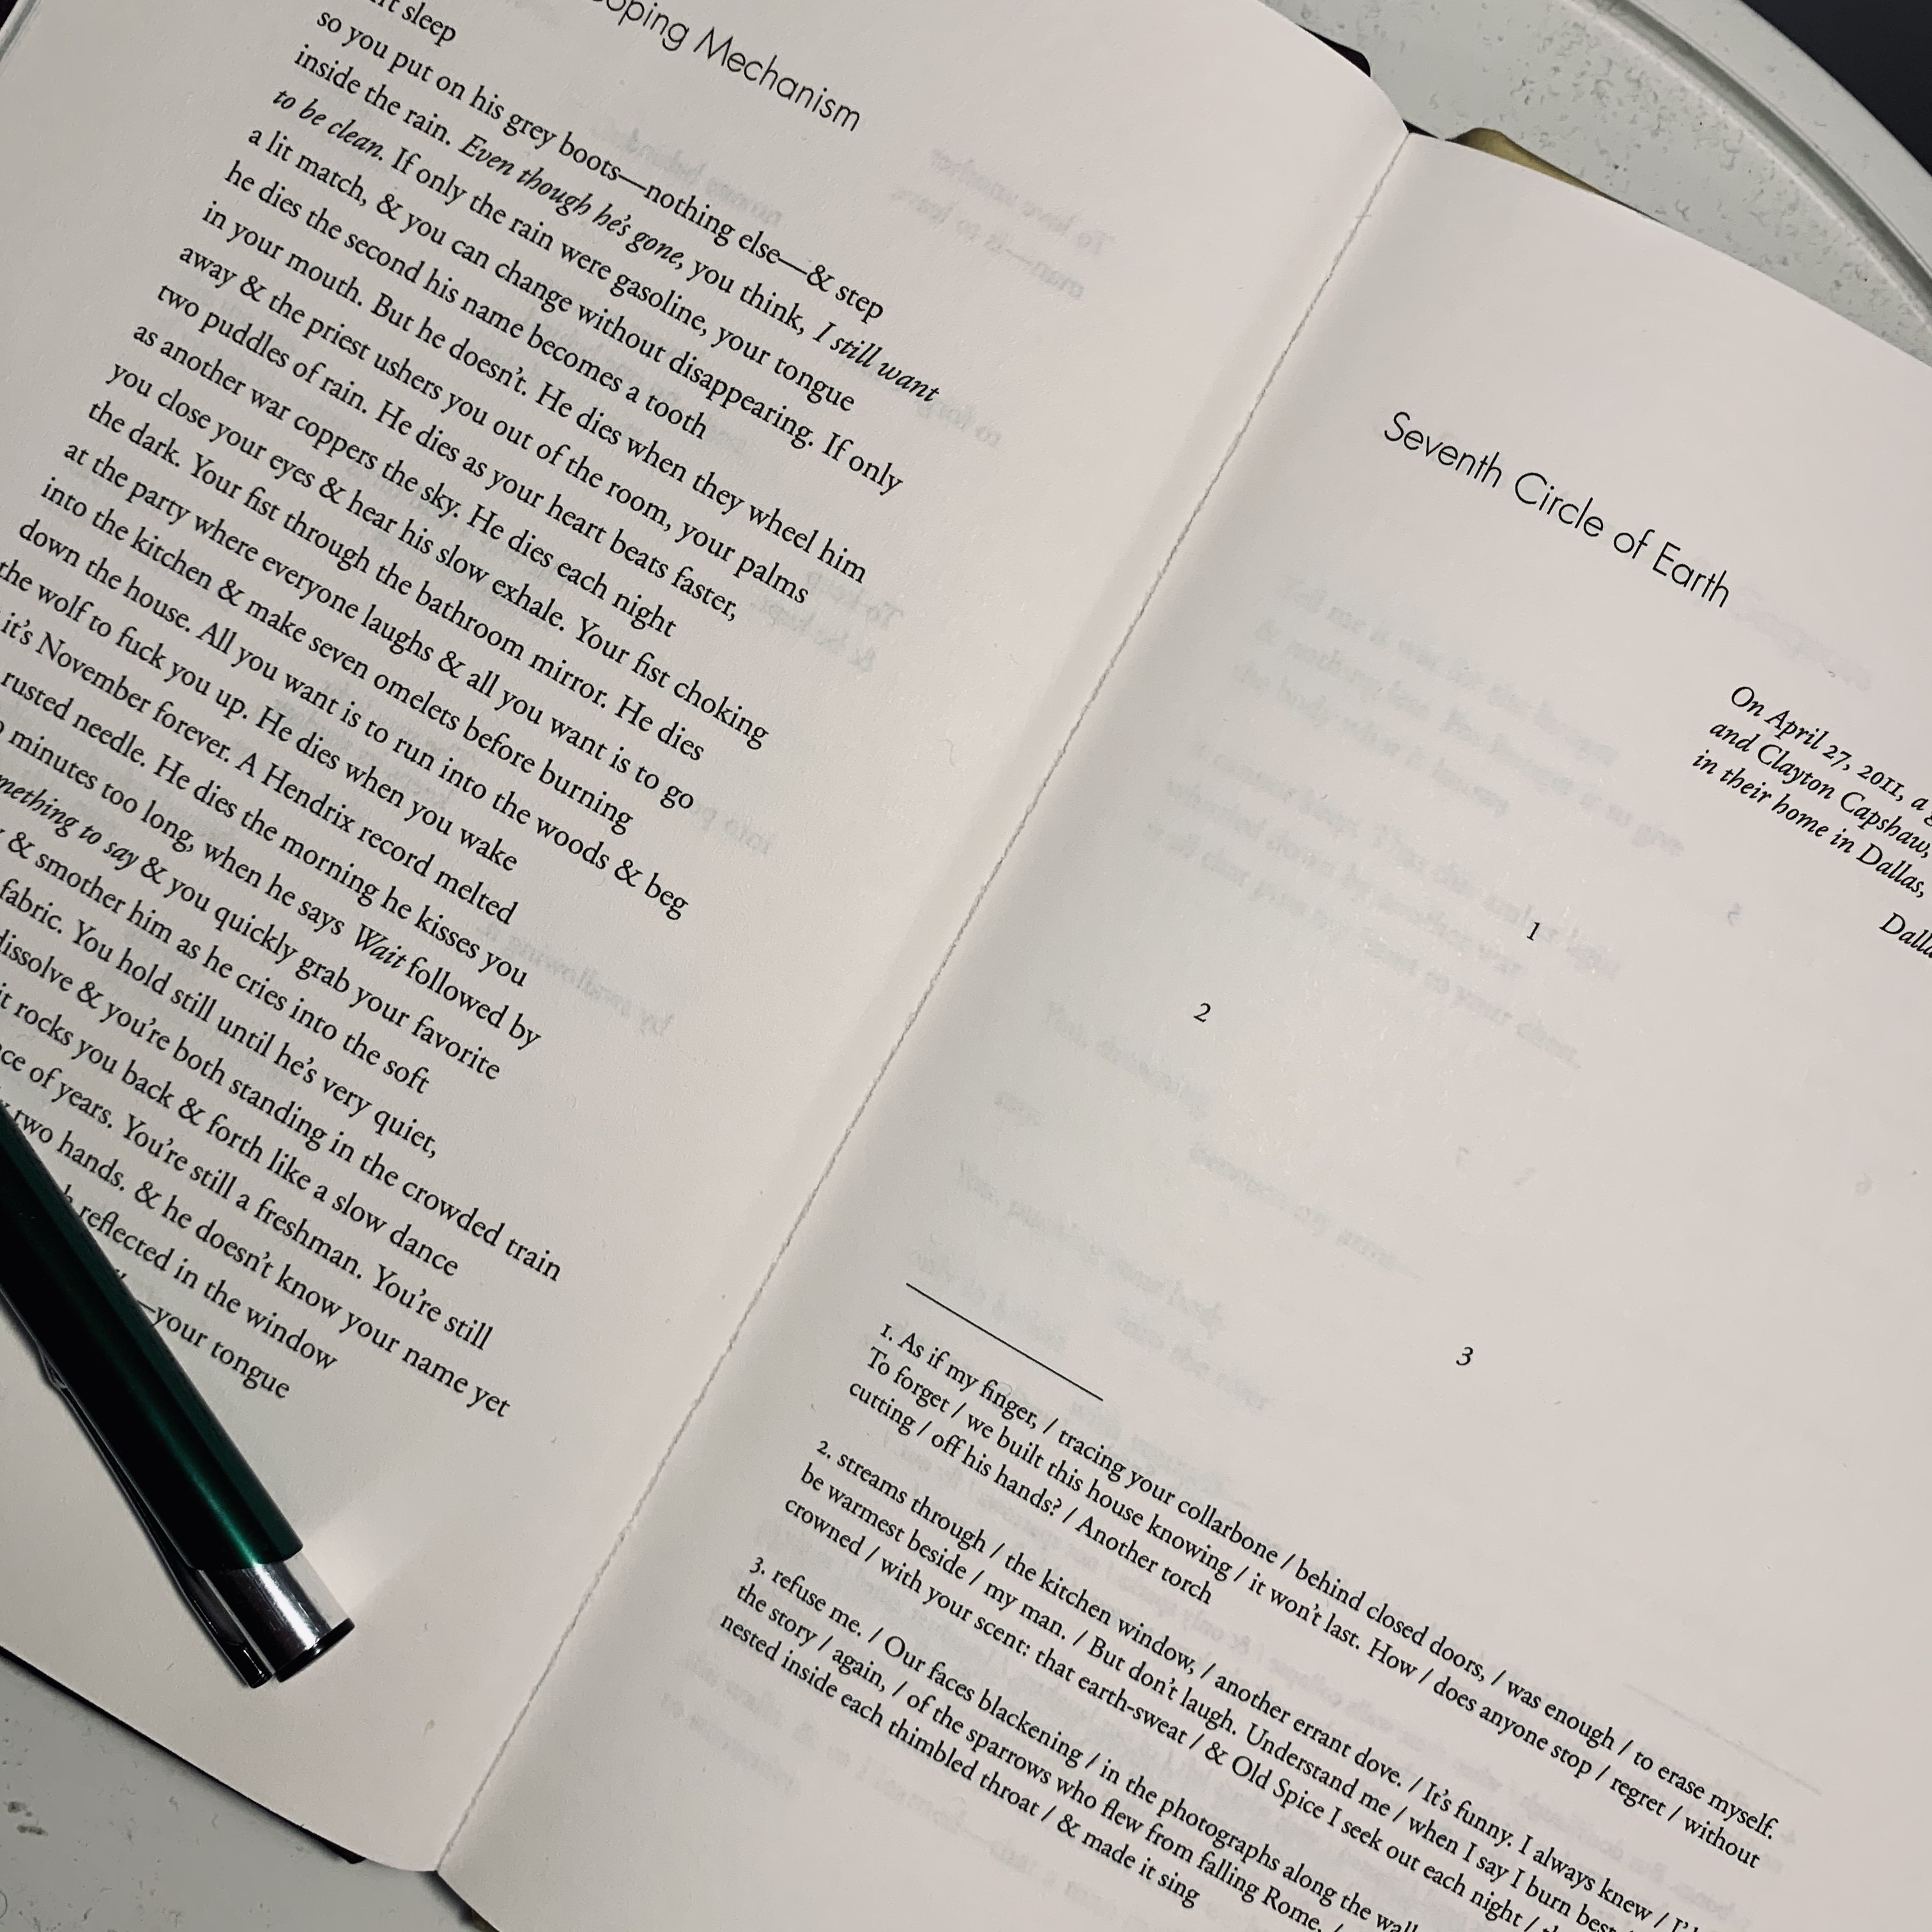 oping Mechanism
sleep
so you put on his grey boots—nothing else—& step
inside the rain. Even though he's gone, you think, I still want
to be clean. If only the rain were gasoline, your tongue
a lit match, & you can change without disappearing. If only
he dies the second his name becomes a tooth
in your mouth. But he doesn't. He dies when they wheel him
away & the priest ushers you out of the room, your palms
two puddles of rain. He dies as your heart beats faster,
as another war coppers the sky. He dies each night
you close your eyes & hear his slow exhale. Your fist choking
the dark. Your fist through the bathroom mirror. He dies
at the party where everyone laughs & all you want is to go
into the kitchen & make seven omelets before burning
down the house. All you want is to run into the woods & beg
the wolf to fuck you up. He dies when you wake
it's November forever. A Hendrix record melted
rusted needle. He dies the morning he kisses you
minutes too long, when he says Wait followed by
mething to say & you quickly grab your favorite
& smother him as he cries into the soft
fabric. You hold still until he's very quiet,
dissolve & you're both standing in the crowded train
it rocks you back & forth like a slow dance
ce of years. You're still a freshman. You're still
two hands. & he doesn't know your name yet
reflected in the window
—your tongue
Seventh Circle of Earth
On April 27, 2011, a g
and Clayton Capshaw,
in their home in Dallas,
Dalla
1
2
3
1. As if my finger, / tracing your collarbone / behind closed doors, / was enough / to erase myself.
To forget / we built this house knowing / it won't last. How / does anyone stop / regret / without
cutting / off his hands? / Another torch
2. streams through / the kitchen window, / another errant dove. / It's funny. I always knew / I'
be warmest beside / my man. / But don't laugh. Understand me / when I say I burn best
crowned / with your scent: that earth-sweat / & Old Spice I seek out each night /
3. refuse me. / Our faces blackening / in the photographs along the wall
the story / again, / of the sparrows who flew from falling Rome, /
nested inside each thimbled throat / & made it sing